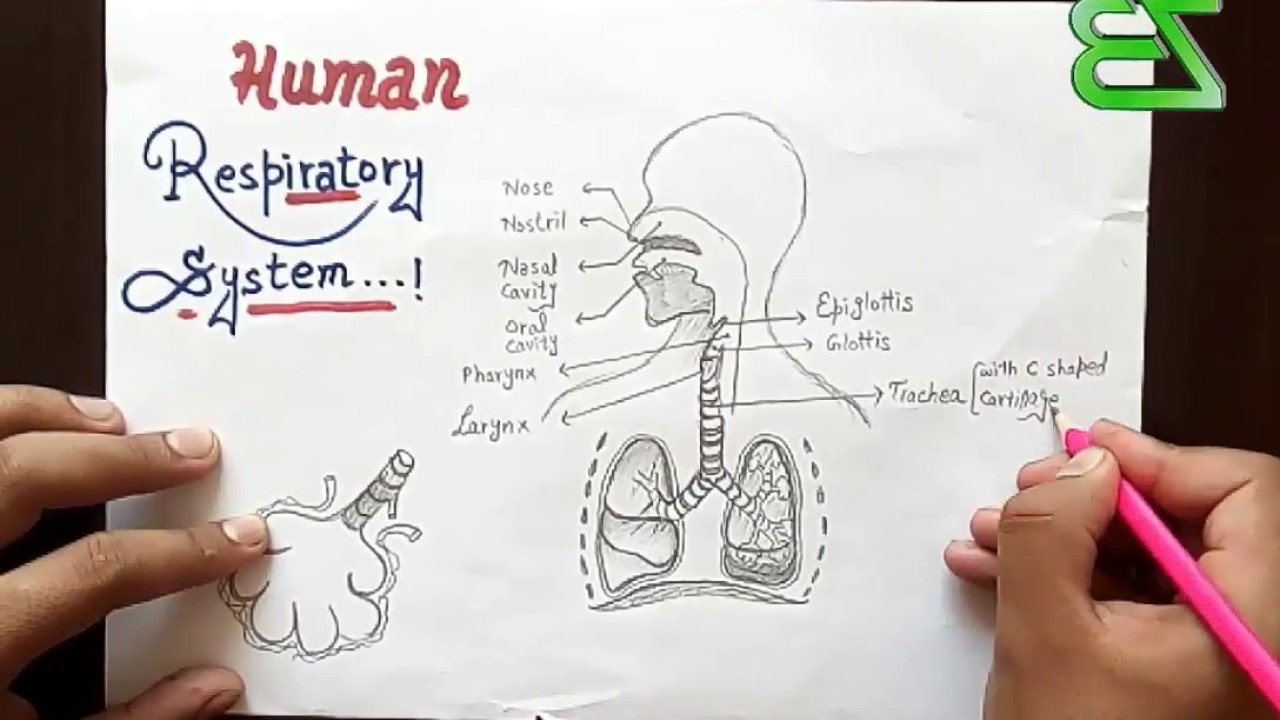 Human
Respiratory
System...!
Nose
Nostril
Nasal
cavity
Oral
cavity
Pharynx
Larynx
Epiglottis
Glottis
Trachea
with C shaped
Cartilage